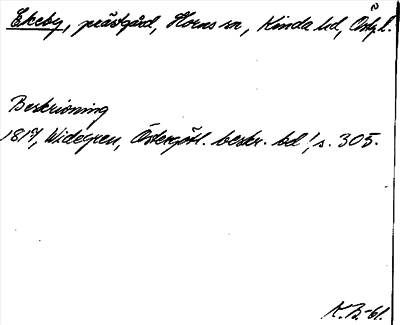 Ekeby, prästgård, Horns sn, Kinda hd, Östg.l.
Beskrivning
1817, Widegren, Östergötl. beskr. bd 1, s. 305.
K.B.-61.